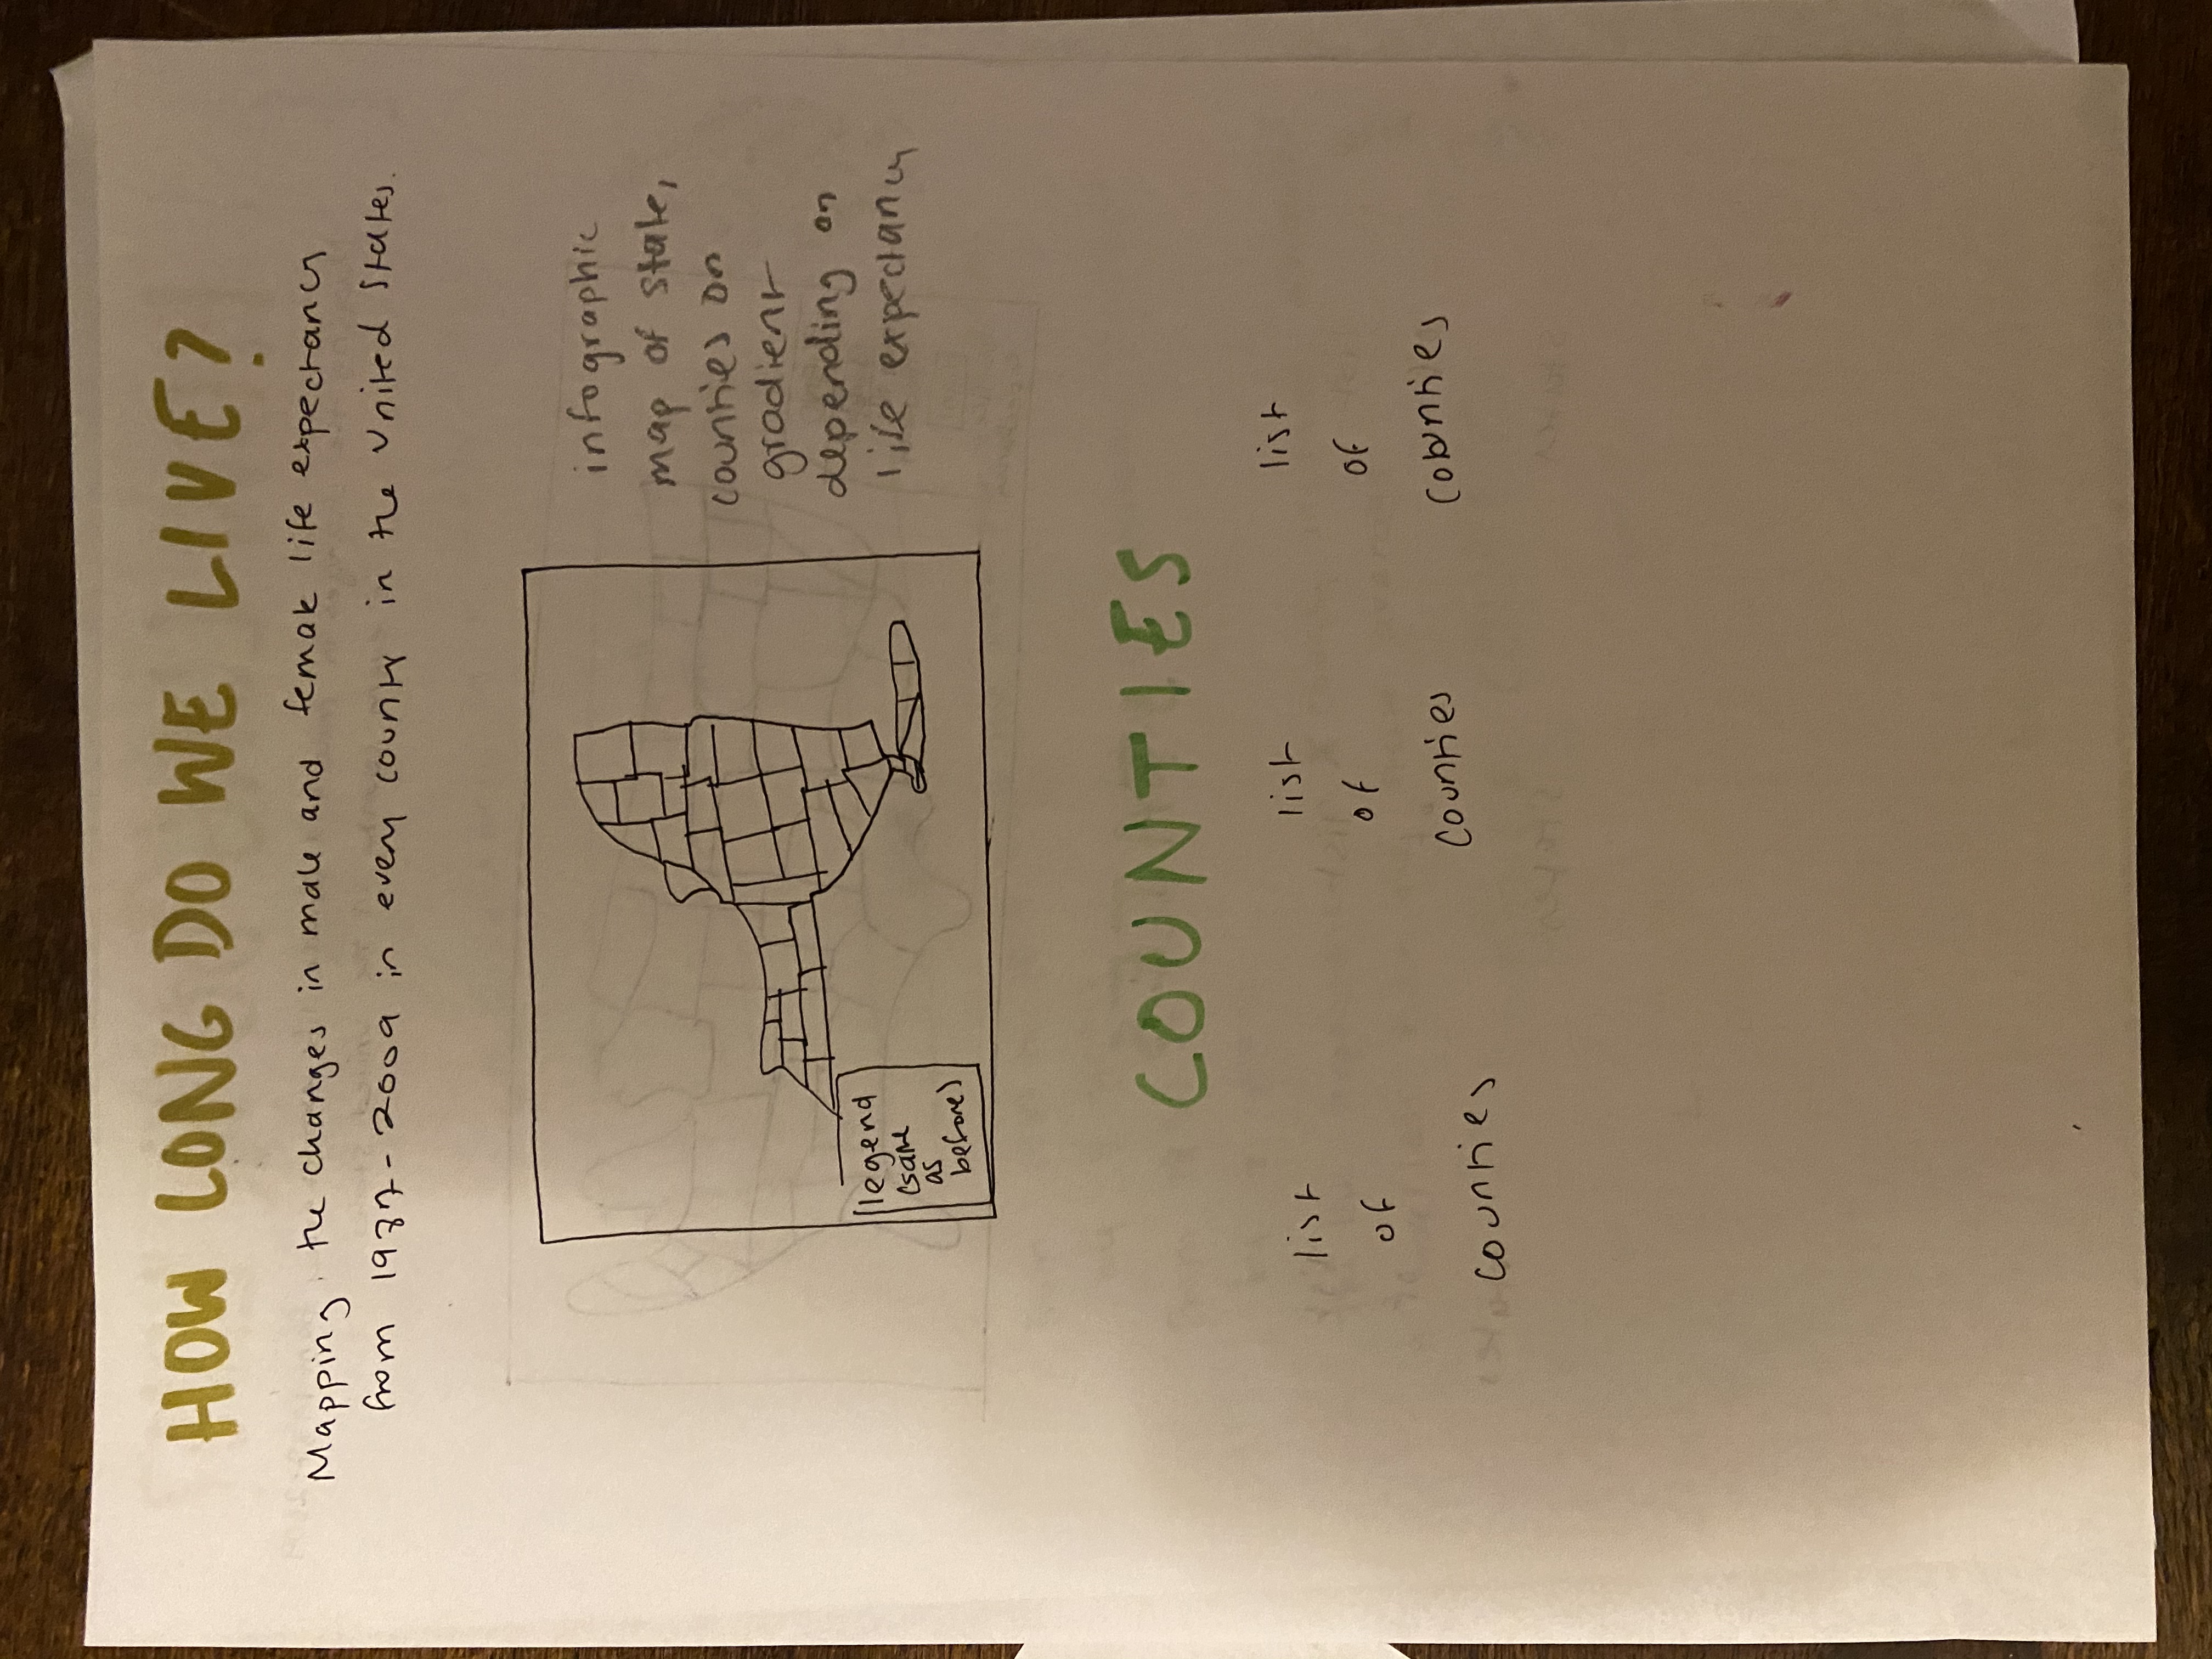 HOW LONG DO WE LIVE?
Mapping the changes in male and female life expectancy
from 1987-2009 in every county in the United States.
infographic
map of state,
counties on
gradient
depending on
life expectancy
legend
(same
as
before)
COUNTIES
list
of
counties
list
of
counties
list
of
counties